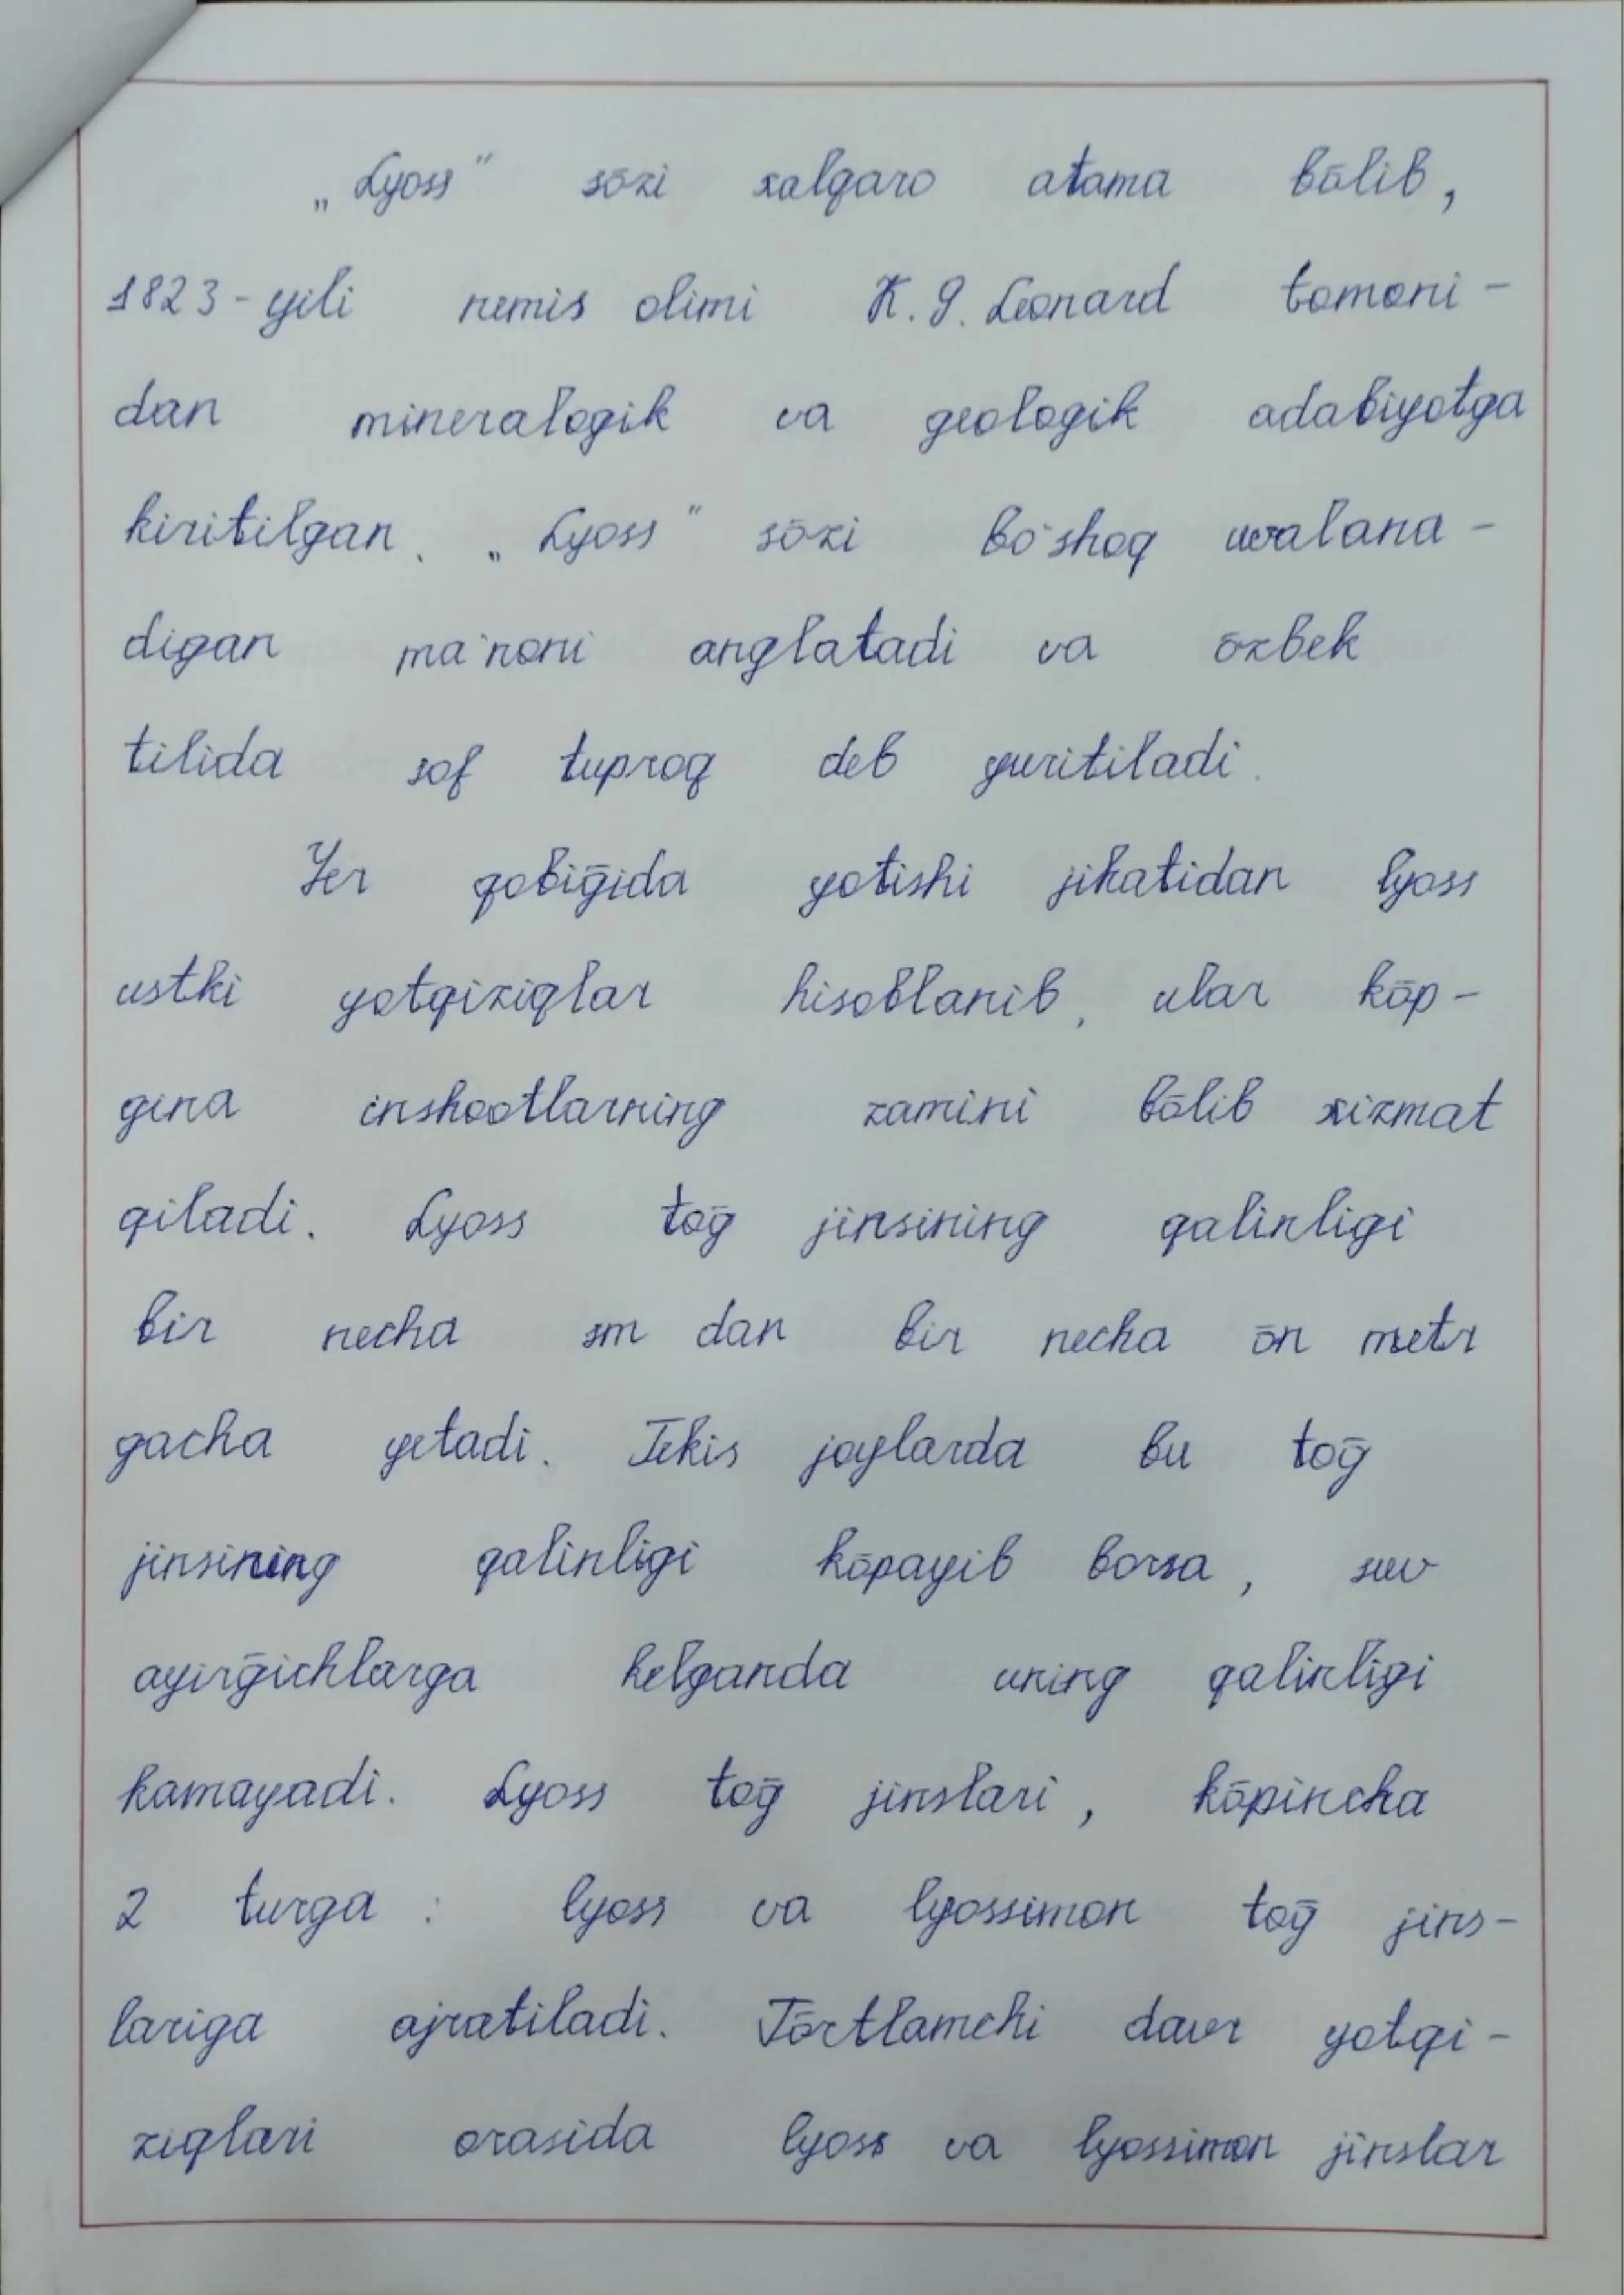 „Lyoss” sōzi xalqaro atama bōlib,
1823-yili nemis olimi K. G. Leonard tomoni-
dan mineralogik va geologik adabiyotga
kiritilgan. „Lyoss” sōzi bo'shoq uvalana-
digan ma'noni anglatadi va ōzbek
tilida sof tuproq deb yuritiladi.
Yer qobiḡida yotishi jihatidan lyoss
ustki yotqiziqlar hisoblanib, ular kōp-
gina inshootlarning zamini bōlib xizmat
qiladi. Lyoss toḡ jinsining qalinligi
bir necha sm dan bir necha ōn metr
gacha yetadi. Tekis joylarda bu toḡ
jinsining qalinligi kōpayib borsa, suv
ayirḡichlarga kelganda uning qalinligi
kamayadi. Lyoss toḡ jinslari, kōpincha
2 turga : lyoss va lyossimon toḡ jins-
lariga ajratiladi. Tōrtlamchi davr yotqi-
ziqlari orasida lyoss va lyossimon jinslar